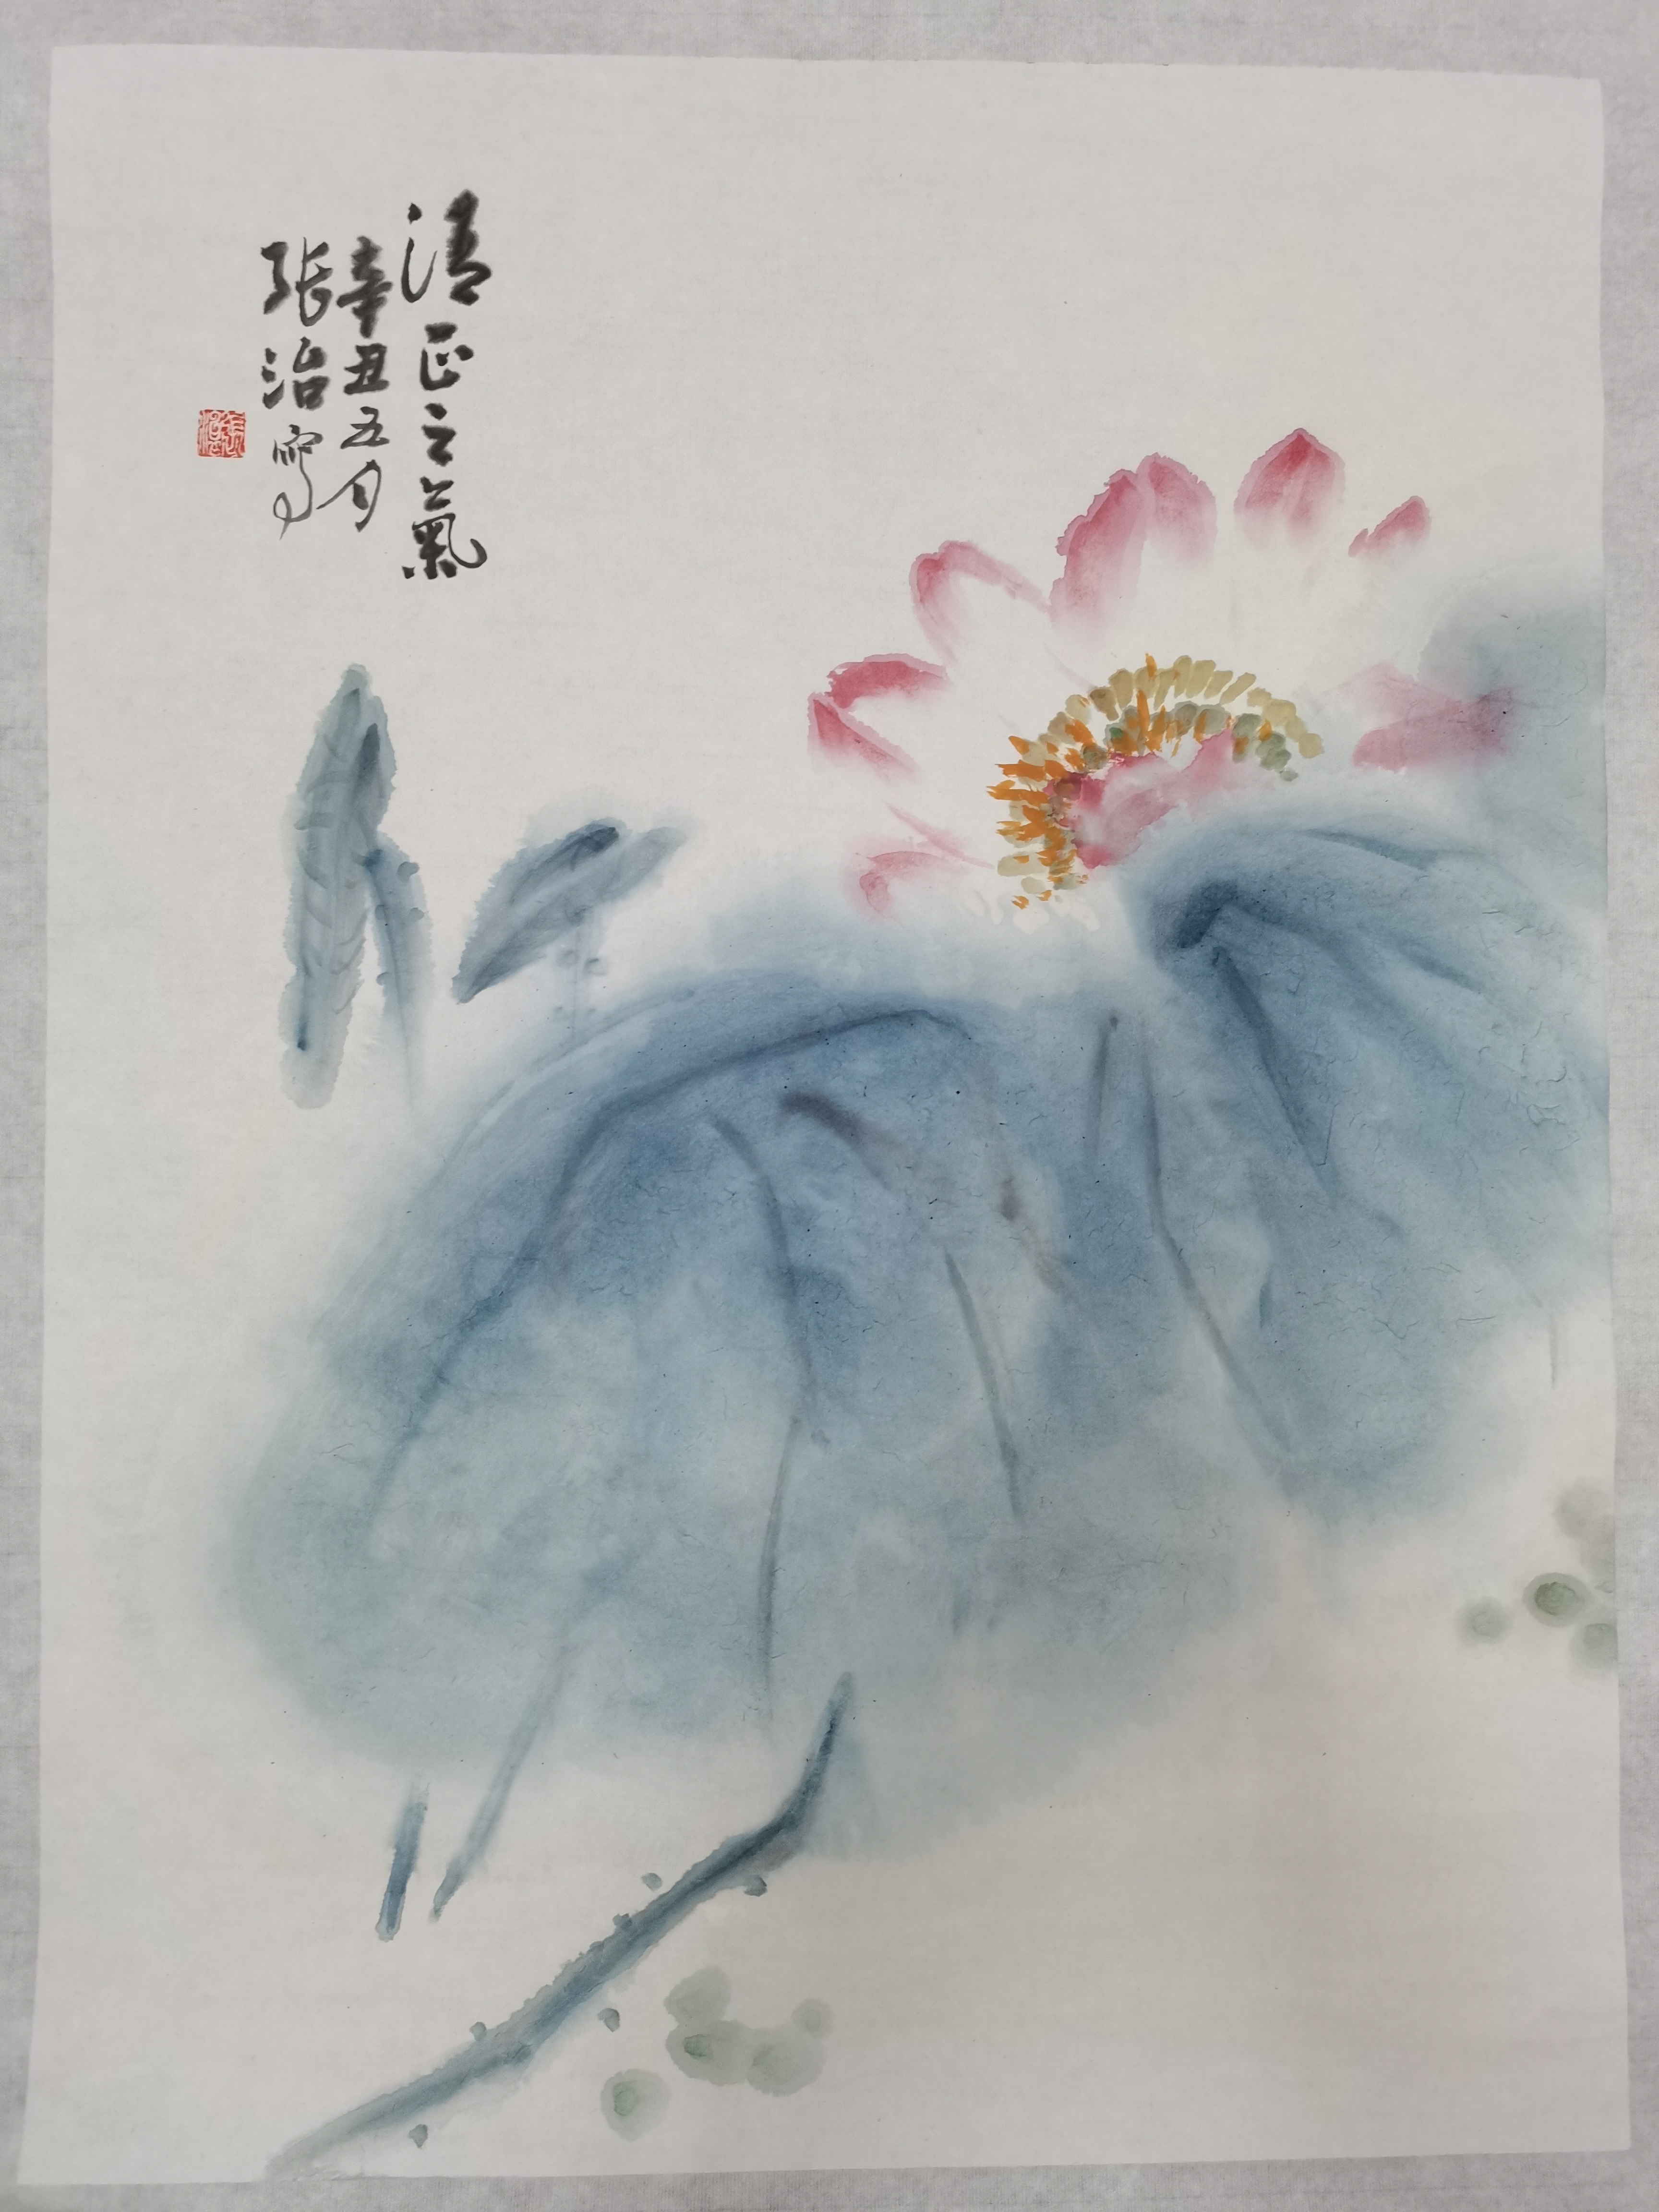 清正之氣
辛丑五月
張治寫